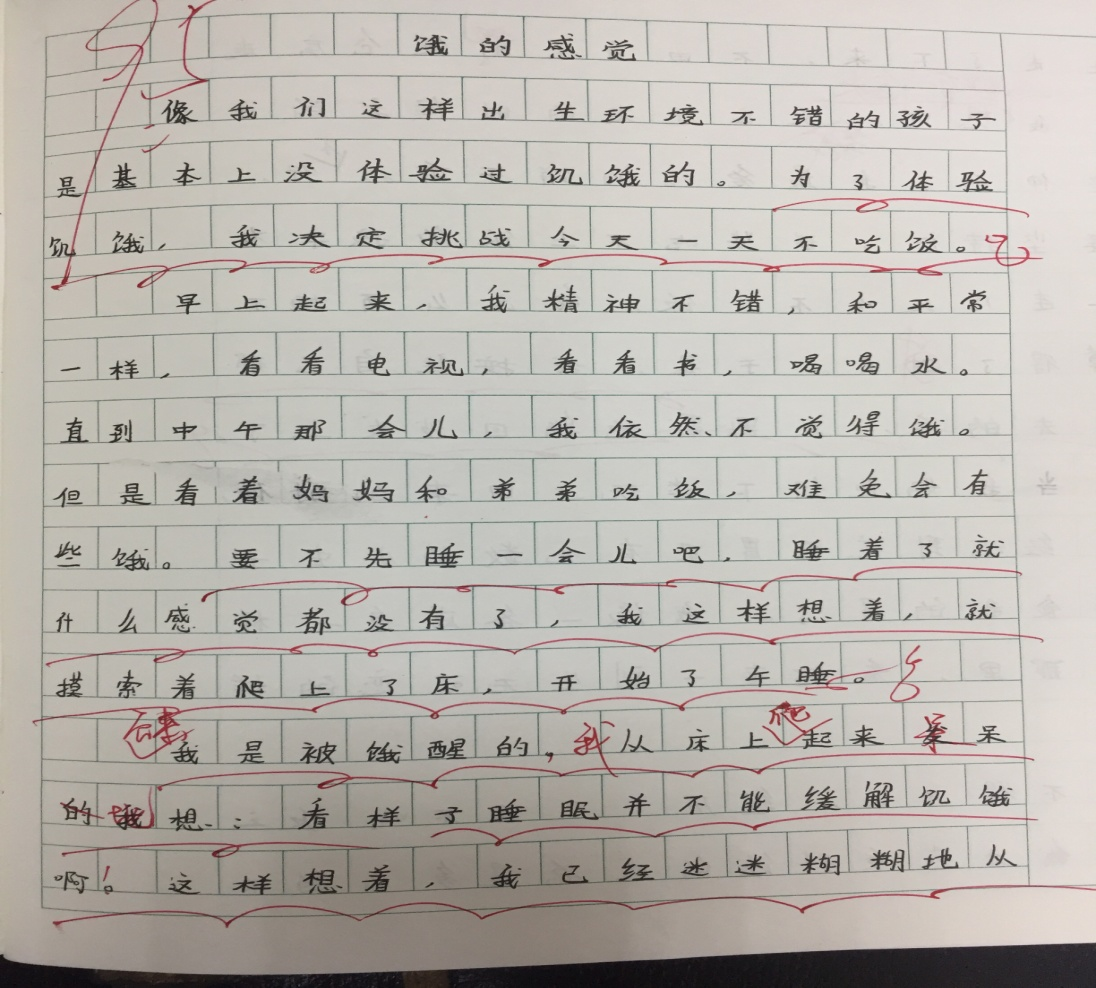 饿的感觉
像我们这样出生环境不错的孩子
是基本上没体验过饥饿的。为了体验
饥饿，我决定挑战今天一天不吃饭。
早上起来，我精神不错，和平常
一样，看看电视，看看书，喝喝水。
直到中午那会儿，我依然不觉得饿。
但是看着妈妈和弟弟吃饭，难免会有
些饿。要不先睡一会儿吧，睡着了就
什么感觉都没有了，我这样想着，就
摸索着爬上了床，开始了午睡。
我是被饿醒的，我从床上爬起来呆呆
的我想：看样子睡眠并不能缓解饥饿
啊！这样想着，我已经迷迷糊糊地从